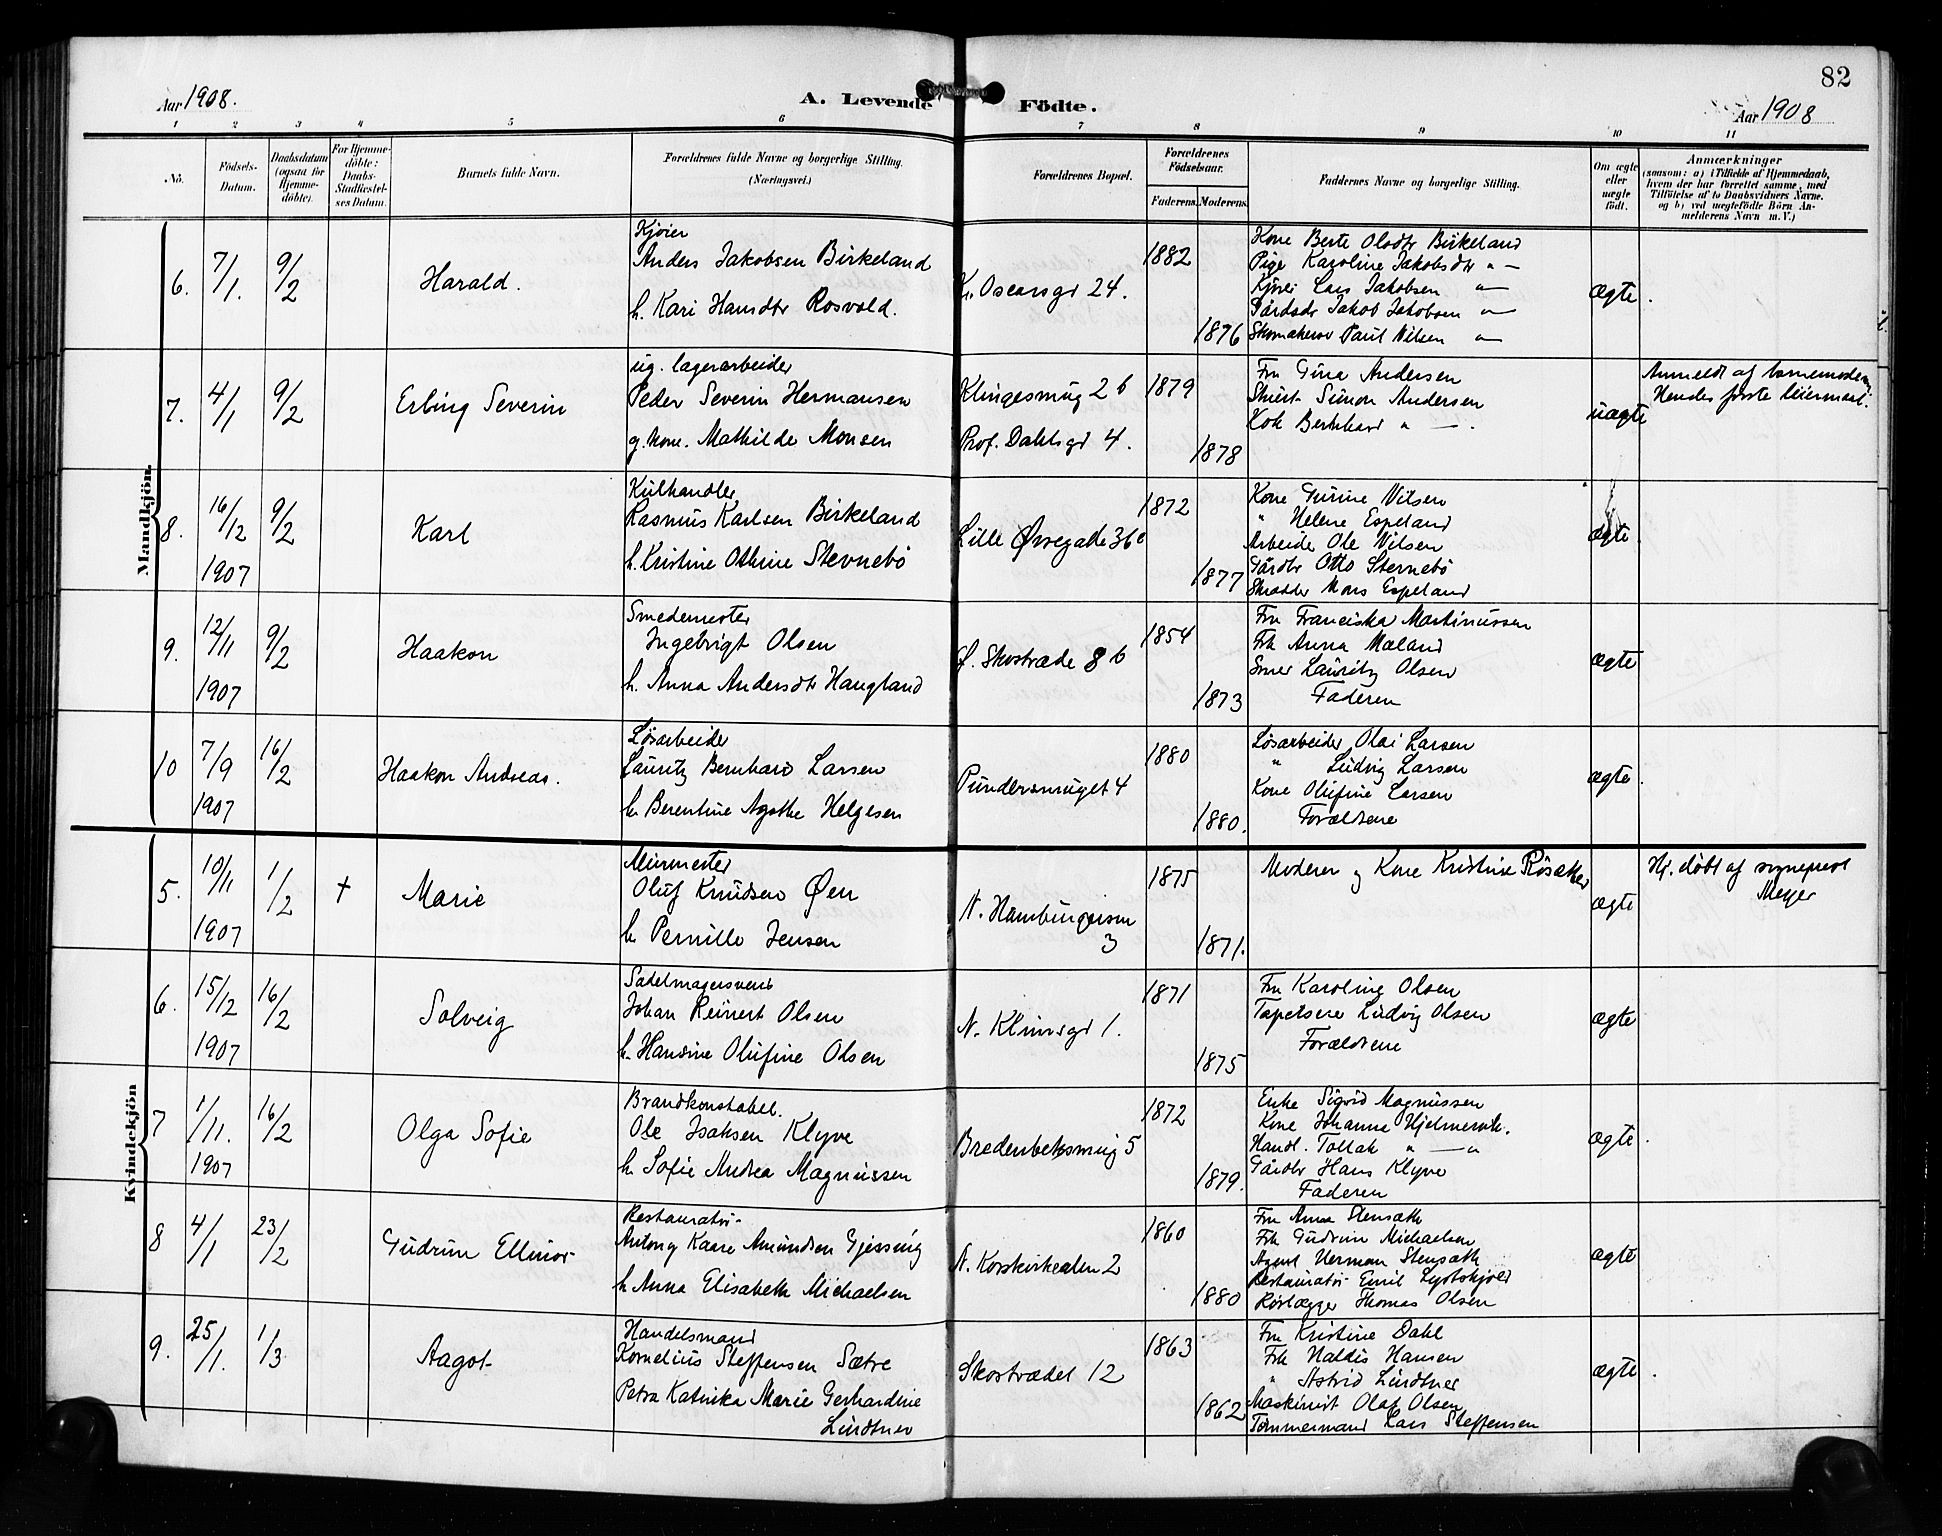 82
Aar 1908.
A. Levende Födte.
Aar 1908
1 2 3 4 5 6 7 8 9 10 11
No.
Födsels-Datum.
Daabsdatum (ogsaa for Hjemme-döbte).
For Hjemme-döbte: Daabs-Stadfæstel-ses Datum.
Barnets fulde Navn.
Forældrenes fulde Navne og borgerlige Stilling. (Næringsvei.)
Forældrenes Bopæl.
Forældrenes Födselsaar.
Faderens. Moderens.
Faddernes Navne og borgerlige Stilling.
Om ægte eller uægte födt.
Anmærkninger
(saasom: a) i Tilfælde af Hjemmedaab,
hvem der har forrettet samme, med
Tilföielse af to Daabsvidners Navne.
og b) ved uægtefödte Börn An-
melderens Navn m. V.)
Mandkjön.
6. 7/1. 9/2 Harald.
Kjører
Anders Jakobsen Birkeland
h. Kari Hansdtr Rosvold.
K. Oscarsgd 24.
1882
1876
Kone Berte Olsdtr Birkeland
Pige Karoline Jakobsdtr " —
Kjører Lars Jakobsen " —
Gårdbr Jakob Jakobsen " —
Skomakersv Paul Nilsen " —
ægte.
7. 4/1 9/2 Erling Severin
ug. lagerarbeider
Peder Severin Hermansen
g. kone. Mathilde Monsen
Klingesmug 2 b
Prof. Dahlsgd 4.
1879
1878
Fru Gina Andersen
Stuert Simon Andersen
Kok Bernhard " —.
uægte
Anmeldt af barnemoderen
Hendes første leiermaal.
8. 16/12 1907 9/2 Karl
Kulhandler
Rasmus Karlsen Birkeland
h. Kristine Othine Stevnebö
Lille Øvregade 36 c
1872
1877
Kone Gurine Nilsen
" Helene Espeland
Arbeider Ole Nilsen
Gårdbr Otto Sternebö
Skrædder Mons Espeland
ægte
9. 12/11 1907 9/2 Haakon
Smedemester
Ingebrigt Olsen
h. Anna Andersdtr Haugland
Ø. Skostræde 8 b
1854
1873
Fru Franciska Martinussen
Frk Anna Mæland
Smed Lauritz Olsen
Faderen
ægte
10 7/9 1907 16/2 Haakon Andreas.
Løsarbeider
Lauritz Bernhard Larsen
h. Berentine Agathe Helgesen
Pundersmuget 4
1880
1880.
Løsarbeider Olai Larsen
" Ludvig Larsen
Kone Olufine Larsen
Forældrene
ægte.
Kvindekjön
5. 10/11 1907 1/2 + Marie
Murmester
Oluf Knudsen Øen
h. Pernille Jensen
N. Hamburgersm
3
1875
1871.
Moderen og Kone Kristine Rösæther
ægte
Hj. døbt af sogneprest
Meyer
6. 15/12 1907 16/2 Solveig
Sadelmagersvend
Johan Reinert Olsen
h. Hansine Olufine Olsen
N. Klinsgd 1.
1871
1875
Fru Karoline Olsen
Tapetserer Ludvig Olsen
Forældrene
ægte
7 1/11. 1907 16/2 Olga Sofie
Brandkonstabel.
Ole Isaksen Klyve
h. Sofie Andrea Magnussen
Bredenbeksmug 5
1872
1879.
Enke Sigrid Magnussen
Kone Johanna Hjelmervik.
Handl. Tollak " — "
Gårdbr Hans Klyve
Faderen
ægte.
8 4/1 23/2 Gudrun Ellinor
Restauratør
Antony Kaare Amundsen Gjessing
h. Anna Elisabeth Michaelsen
N. Korskirkealm 2
1860
1880
Fru Anna Stensæth
Frk Gudrun Michaelsen
Agent Herman Stensæth
Restauratør Emil Lystskjold
Rørlægger Thomas Olsen
ægte
9. 25/1. 1/3 Aagot
Handelsmand
Kornelius Steffensen Sætre
Petra Katinka Marie Gerhardine
Lindtner
Skostrædet 12
1863
1862
Fru Kristine Dahl
Frk Haldis Hansen
" Astrid Lindtner
Maskinist Olaf Olsen
Tømmermand Lars Steffensen
ægte.